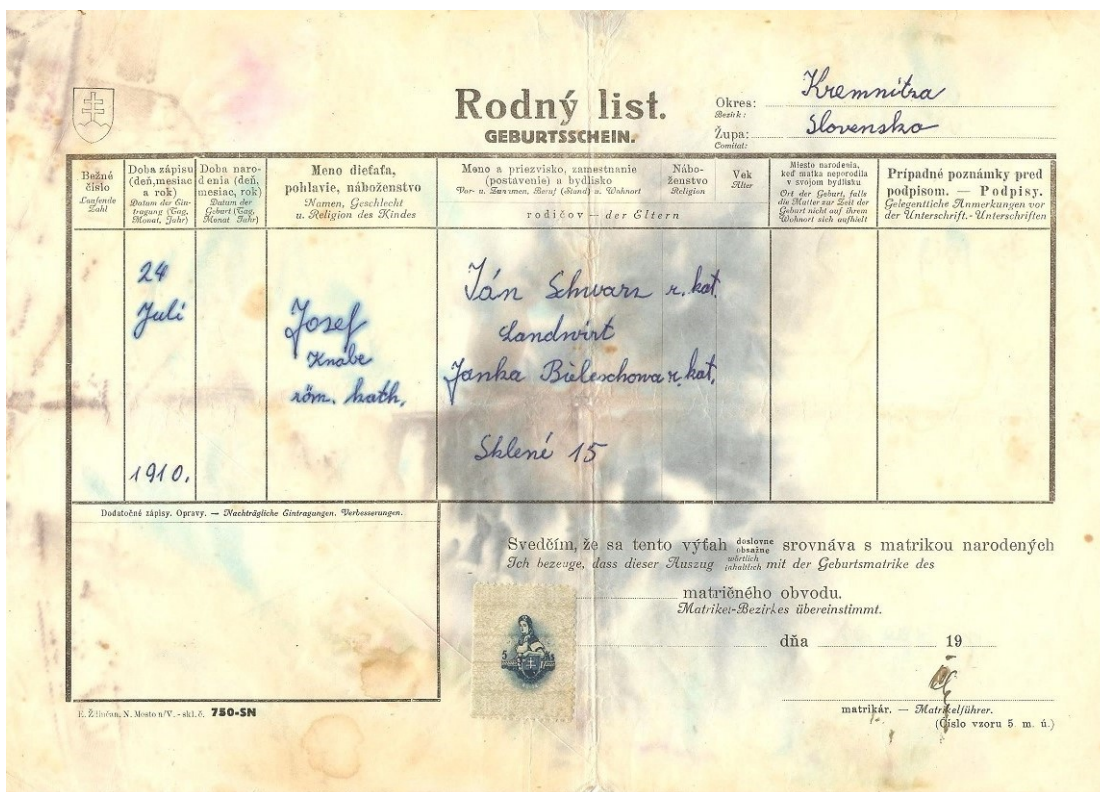 Rodný list.
GEBURTSSCHEIN.
Okres: Kremnitza
Bezirk:
Župa: Slovensko
Comitat:
Bežné číslo
Laufende Zahl
Doba zápisu (deň, mesiac a rok)
Datum der Eintragung (Tag, Monat, Jahr)
Doba narodenia (deň, mesiac, rok)
Datum der Geburt (Tag, Monat Jahr)
Meno dieťaťa, pohlavie, náboženstvo
Namen, Geschlecht u. Religion des Kindes
Meno a priezvisko, zamestnanie (postavenie) a bydlisko
Vor- u. Zunamen, Beruf (Stand) u. Wohnort
Náboženstvo
Religion
Vek
Alter
rodičov — der Eltern
Miesto narodenia, keď matka neporodila v svojom bydlisku
Ort der Geburt, falls die Mutter zur Zeit der Geburt nicht auf ihrem Wohnort sich aufhielt
Prípadné poznámky pred podpisom. — Podpisy.
Gelegentliche Anmerkungen vor der Unterschrift.- Unterschriften
24
Juli
1910.
Josef
Knabe
röm. kath.
Ján Schwarz r. kat.
Landwirt
Janka Bieleschowa r. kat.
Sklené 15
Dodatočné zápisy. Opravy. — Nachträgliche Eintragungen. Verbesserungen.
Svedčím, že sa tento výťah doslovne obsažne srovnáva s matrikou narodených
Ich bezeuge, dass dieser Auszug wörtlich inhaltlich mit der Geburtsmatrike des
matričného obvodu.
Matrikel-Bezirkes übereinstimmt.
dňa 19
5
matrikár. — Matrikelführer.
(Číslo vzoru 5 m. ú.)
E. Žlinčan, N. Mesto n/V. - skl. č. 750-SN